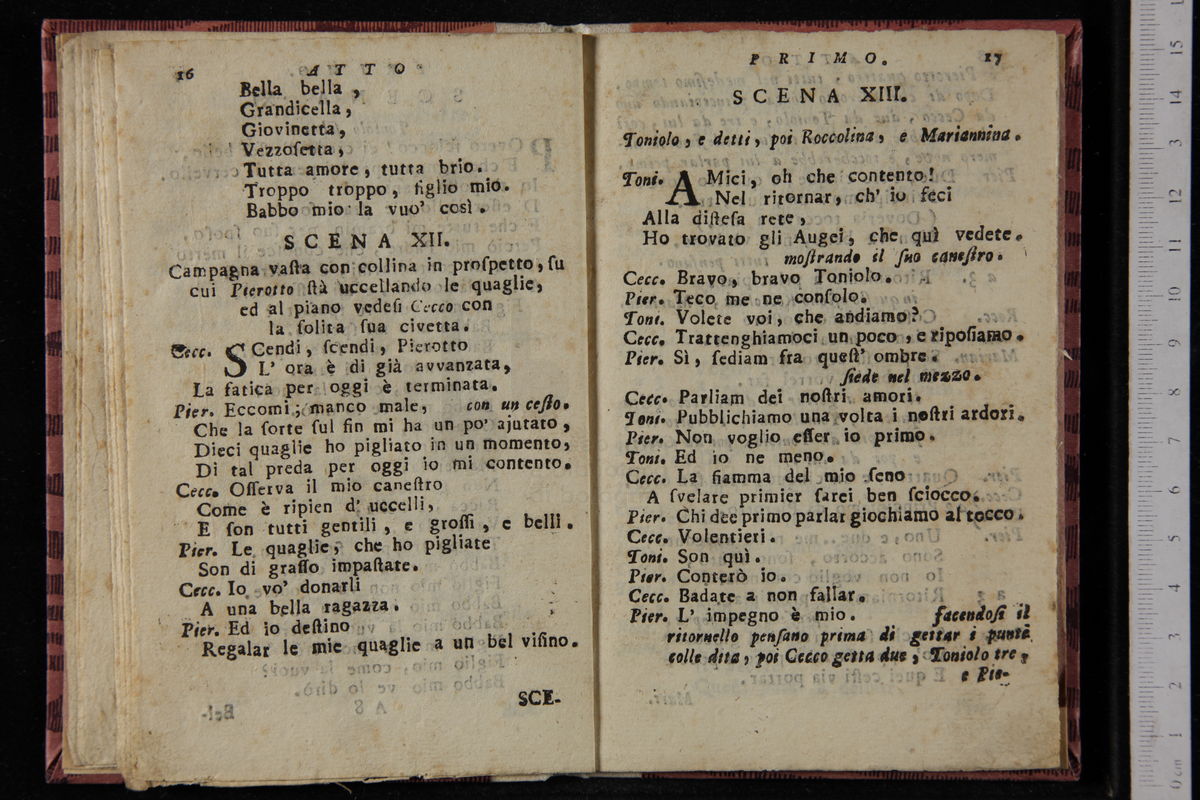 16 ATTO
Bella bella,
Grandicella,
Giovinetta,
Vezzoſetta,
Tutta amore, tutta brio.
Troppo troppo, figlio mio.
Babbo mio la vuo' così.
SCENA XII.
Campagna vaſta con collina in proſpetto, ſu
cui Pierotto ſtà uccellando le quaglie,
ed al piano vedeſi Cecco con
la ſolita ſua civetta.
Cecc. SCendi, ſcendi, Pierotto
L' ora è di già avvanzata,
La fatica per oggi è terminata.
Pier. Eccomi; manco male, con un ceſto.
Che la ſorte ſul fin mi ha un po' ajutato,
Dieci quaglie ho pigliato in un momento,
Di tal preda per oggi io mi contento.
Cecc. Oſſerva il mio caneſtro
Come è ripien d' uccelli,
E ſon tutti gentili, e groſſi, e belli.
Pier. Le quaglie, che ho pigliate
Son di graſſo impaſtate.
Cecc. Io vo' donarli
A una bella ragazza.
Pier. Ed io deſtino
Regalar le mie quaglie a un bel viſino.
SCE-
PRIMO. 17
SCENA XIII.
Toniolo, e detti, poi Roccolina, e Mariannina.
Toni. AMici, oh che contento!
Nel ritornar, ch' io feci
Alla diſteſa rete,
Ho trovato gli Augei, che quì vedete.
moſtrando il ſuo caneſtro.
Cecc. Bravo, bravo Toniolo.
Pier. Teco me ne conſolo.
Toni. Volete voi, che andiamo?
Cecc. Trattenghiamoci un poco, e ripoſiamo.
Pier. Sì, ſediam fra queſt' ombre.
ſiede nel mezzo.
Cecc. Parliam dei noſtri amori.
Toni. Pubblichiamo una volta i noſtri ardori.
Pier. Non voglio eſſer io primo.
Toni. Ed io ne meno.
Cecc. La fiamma del mio ſeno
A ſvelare primier ſarei ben ſciocco.
Pier. Chi dee primo parlar giochiamo al tocco.
Cecc. Volentieri.
Toni. Son quì.
Pier. Conterò io.
Cecc. Badate a non fallar.
Pier. L' impegno è mio. facendoſi il
ritornello penſano prima di gettar i punti
colle dita, poi Cecco getta due, Toniolo tre,
e Pie-